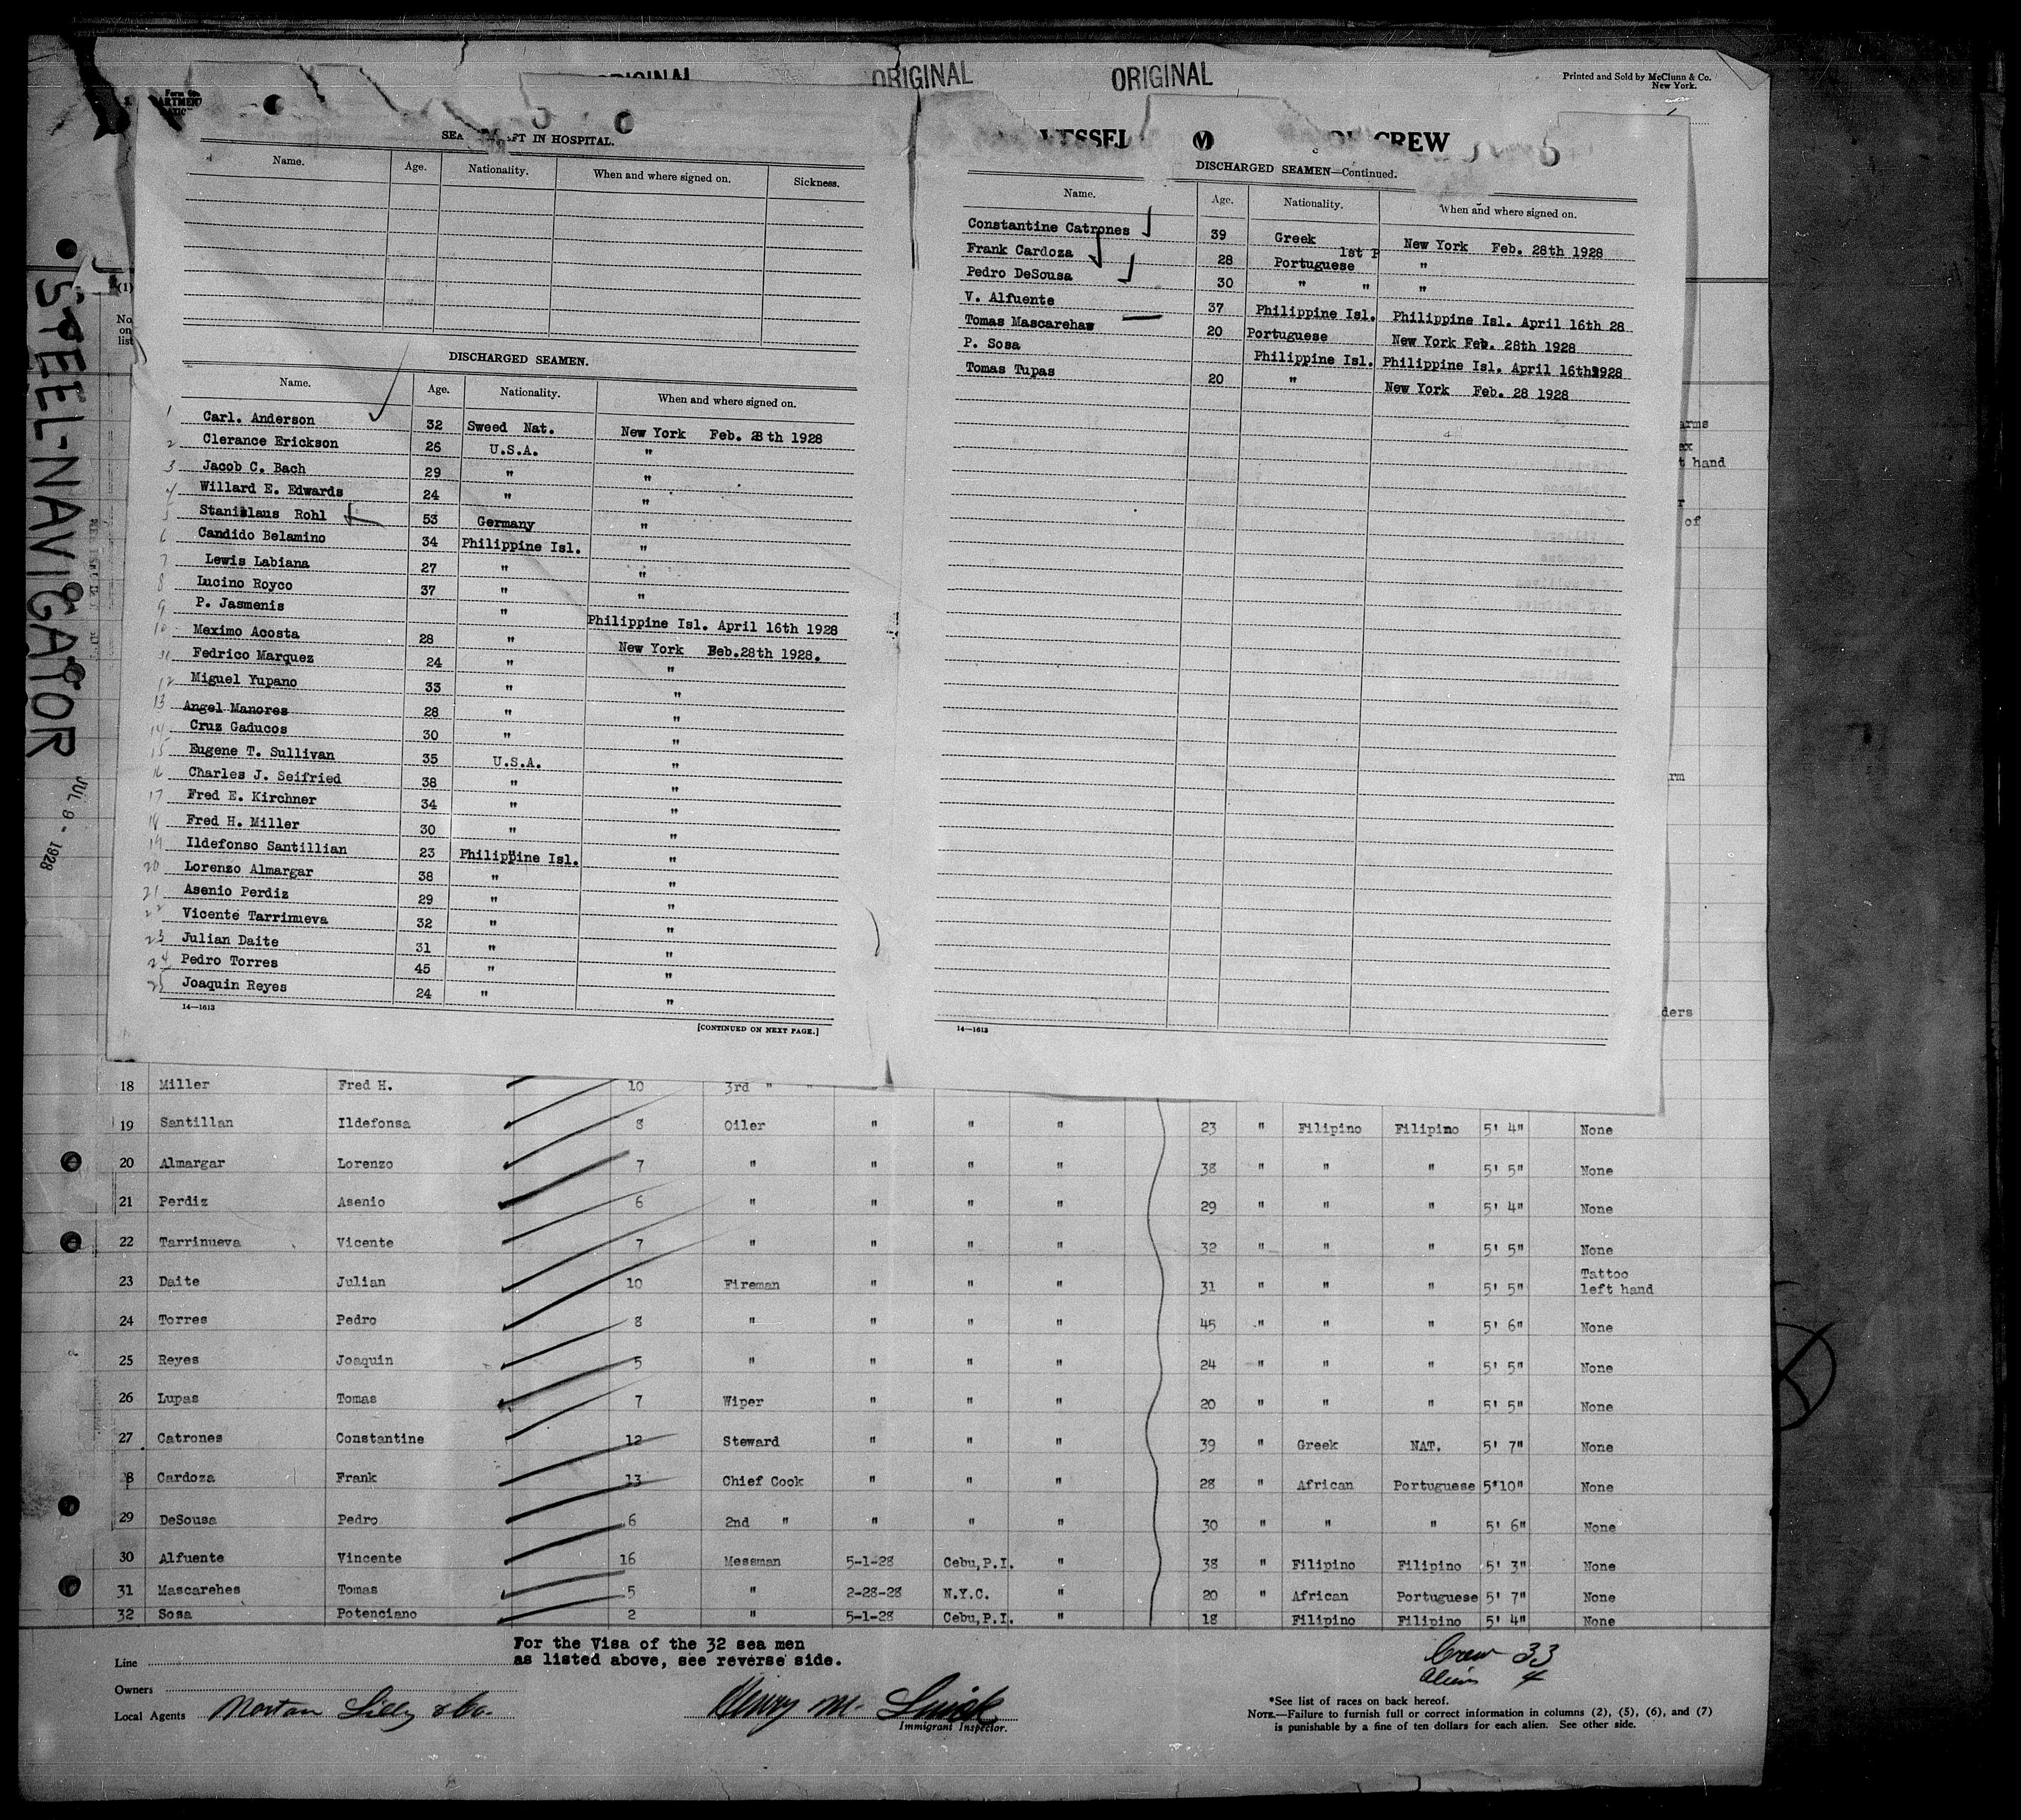 ORIGINAL
ORIGINAL
ORIGINAL
Printed and Sold by McClunn & Co.
New York.
VESSEL
CREW
STEEL-NAVIGATOR
JUL 9 - 1928
(1)
No.
on
list
SEA LEFT IN HOSPITAL.
Name. Age. Nationality. When and where signed on. Sickness.
DISCHARGED SEAMEN.
Name. Age. Nationality. When and where signed on.
1 Carl. Anderson 32 Sweed Nat. New York Feb. 28th 1928
2 Clerance Erickson 25 U.S.A. "
3 Jacob C. Bach 29 " "
4 Willard E. Edwards 24 " "
5 Stanislaus Rohl 53 Germany "
6 Candido Belamino 34 Philippine Isl. "
7 Lewis Labiana 27 " "
8 Lucino Royco 37 " "
9 P. Jasmenis " Philippine Isl. April 16th 1928
10 Meximo Acosta 28 " New York Feb.28th 1928.
11 Fedrico Marquez 24 " "
12 Miguel Yupano 33 " "
13 Angel Manores 28 " "
14 Cruz Gaducos 30 " "
15 Eugene T. Sullivan 35 U.S.A. "
16 Charles J. Seifried 38 " "
17 Fred E. Kirchner 34 " "
18 Fred H. Miller 30 " "
19 Ildefonso Santillian 23 Philippine Isl. "
20 Lorenzo Almargar 38 " "
21 Asenio Perdiz 29 " "
22 Vicente Tarrinueva 32 " "
23 Julian Daite 31 " "
24 Pedro Torres 45 " "
25 Joaquin Reyes 24 " "
14—1613
[CONTINUED ON NEXT PAGE.]
DISCHARGED SEAMEN—Continued.
Name. Age. Nationality. When and where signed on.
Constantine Catrones 39 Greek New York Feb. 28th 1928
1st P
Frank Cardoza 28 Portuguese "
Pedro DeSousa 30 " " "
V. Alfuente 37 Philippine Isl. Philippine Isl. April 16th 28
Tomas Mascarehas 20 Portuguese New York Feb. 28th 1928
P. Sosa Philippine Isl. Philippine Isl. April 16th 1928
Tomas Tupas 20 " New York Feb. 28 1928
14—1613
arms
hand
of
arm
ders
18 Miller Fred H. 10 3rd " "
19 Santillan Ildefonsa 8 Oiler " " " 23 " Filipino Filipino 5' 4" None
20 Almargar Lorenzo 7 " " " " 38 " " " 5' 5" None
21 Perdiz Asenio 6 " " " " 29 " " " 5' 4" None
22 Tarrinueva Vicente 7 " " " " 32 " " " 5' 5" None
23 Daite Julian 10 Fireman " " " 31 " " " 5' 5" Tattoo left hand
24 Torres Pedro 8 " " " " 45 " " " 5' 6" None
25 Reyes Joaquin 5 " " " " 24 " " " 5' 5" None
26 Lupas Tomas 7 Wiper " " " 20 " " " 5' 5" None
27 Catrones Constantine 12 Steward " " " 39 " Greek NAT. 5' 7" None
28 Cardoza Frank 13 Chief Cook " " " 28 " African Portuguese 5'10" None
29 DeSousa Pedro 6 2nd " " " " 30 " " " 5' 6" None
30 Alfuente Vincente 16 Messman 5-1-28 Cebu,P.I. " 38 " Filipino Filipino 5' 3" None
31 Mascarehes Tomas 5 " 2-28-28 N.Y.C. " 20 " African Portuguese 5' 7" None
32 Sosa Potenciano 2 " 5-1-28 Cebu,P.I. " 18 Filipino Filipino 5' 4" None
For the Visa of the 32 sea men
as listed above, see reverse side.
Line
Owners
Local Agents Norton Lilly & Co.
Henry M.
Immigrant Inspector.
Crew 33
Alien 4
*See list of races on back hereof.
NOTE.—Failure to furnish full or correct information in columns (2), (5), (6), and (7)
is punishable by a fine of ten dollars for each alien. See other side.